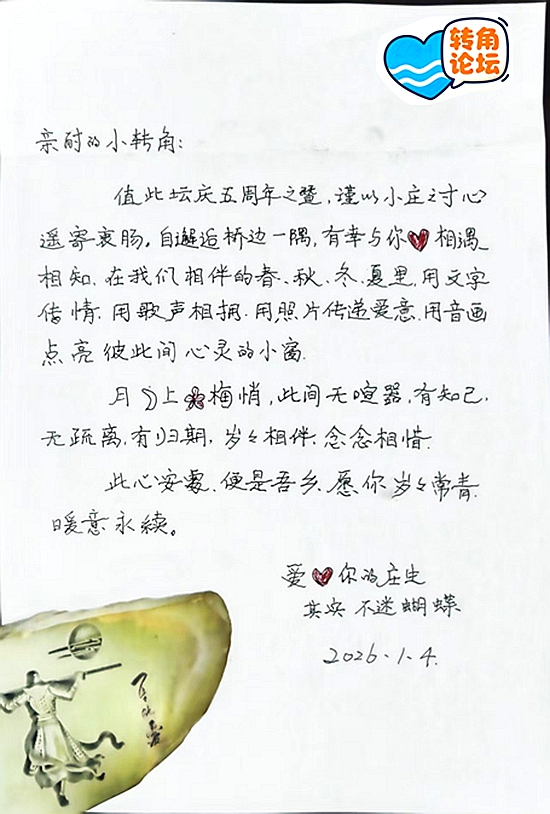 转角
论坛
亲耐的小转角：
值此坛庆五周年之暨，谨以小庄之寸心
遥寄衷肠。自邂逅桥边一隅，有幸与你❤相遇
相知，在我们相伴的春、秋、冬、夏里，用文字
传情，用歌声相拥，用照片传递爱意，用音画
点亮彼此间心灵的小窗
月上梅悄，此间无喧嚣，有知己，
无疏离，有归期，岁々相伴，念念相惜
此心安处，便是吾乡，愿你岁々常青，
暖意永续。
爱❤你的庄生
其实不迷蝴蝶
2026.1.4.